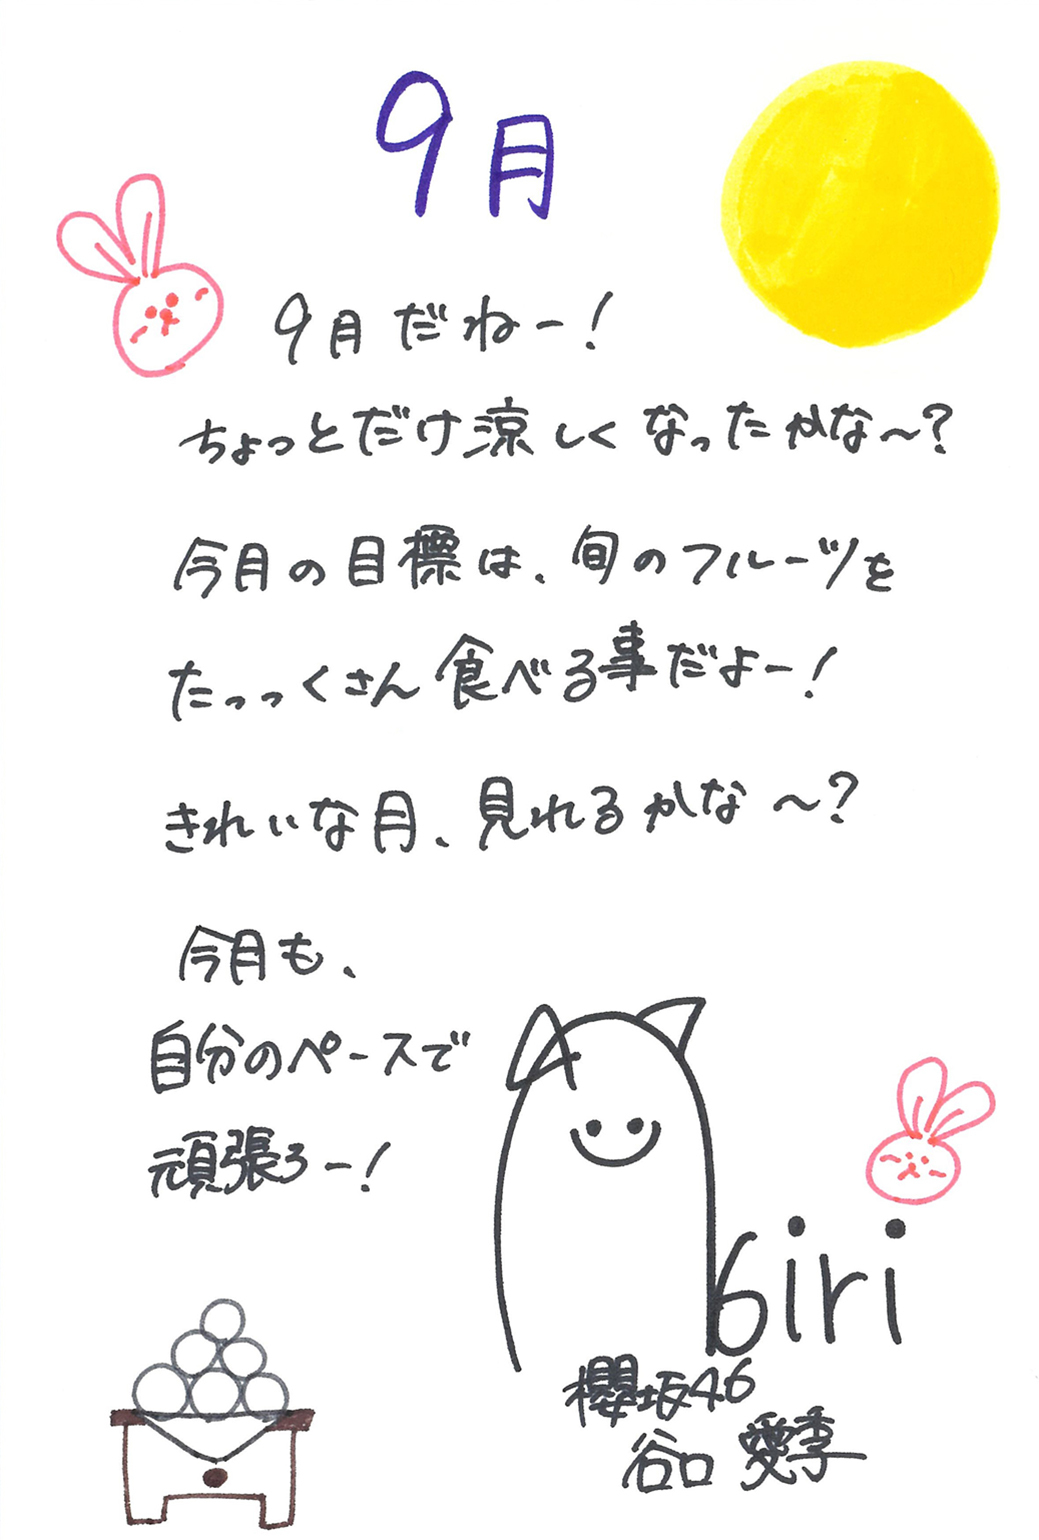 9月
9月だねー!
ちょっとだけ涼しくなったかな〜?
今月の目標は、旬のフルーツを
たっっくさん食べる事だよー!
きれいな月、見れるかな〜?
今月も、
自分のペースで
頑張ろー!
biri
櫻坂46
谷口 愛季